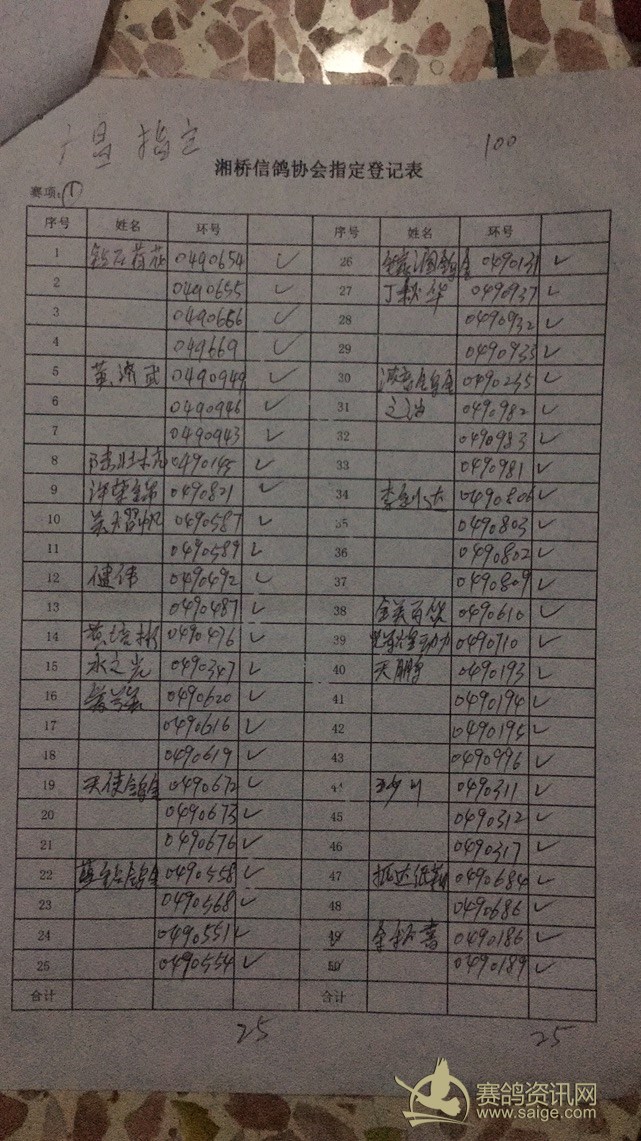 指定
100
湘桥信鸽协会指定登记表
赛项:①
序号 姓名 环号 序号 姓名 环号
1 0490654 ✓ 26 0490131 ✓
2 0490655 ✓ 27 丁秋华 0490937 ✓
3 0490666 ✓ 28 0490932 ✓
4 049669 ✓ 29 0490933 ✓
5 0490949 ✓ 30 0490235 ✓
6 0490946 ✓ 31 0490982 ✓
7 0490943 ✓ 32 0490983 ✓
8 0490145 ✓ 33 0490981 ✓
9 0490821 ✓ 34 0490806 ✓
10 0490587 ✓ 35 0490803 ✓
11 0490589 ✓ 36 0490802 ✓
12 健伟 0490492 ✓ 37 0490809 ✓
13 0490487 ✓ 38 0490610 ✓
14 黄培彬 0490476 ✓ 39 动力 0490710 ✓
15 永之光 0490347 ✓ 40 天鹏 0490193 ✓
16 0490620 ✓ 41 0490194 ✓
17 0490616 ✓ 42 0490195 ✓
18 0490619 ✓ 43 0490996 ✓
19 天使 0490672 ✓ 44 0490311 ✓
20 0490673 ✓ 45 0490312 ✓
21 0490676 ✓ 46 0490317 ✓
22 0490558 ✓ 47 0490684 ✓
23 0490568 ✓ 48 0490686 ✓
24 0490551 ✓ 49 0490186 ✓
25 0490554 ✓ 50 0490189 ✓
合计 合计
25 25
赛鸽资讯网
www.saige.com